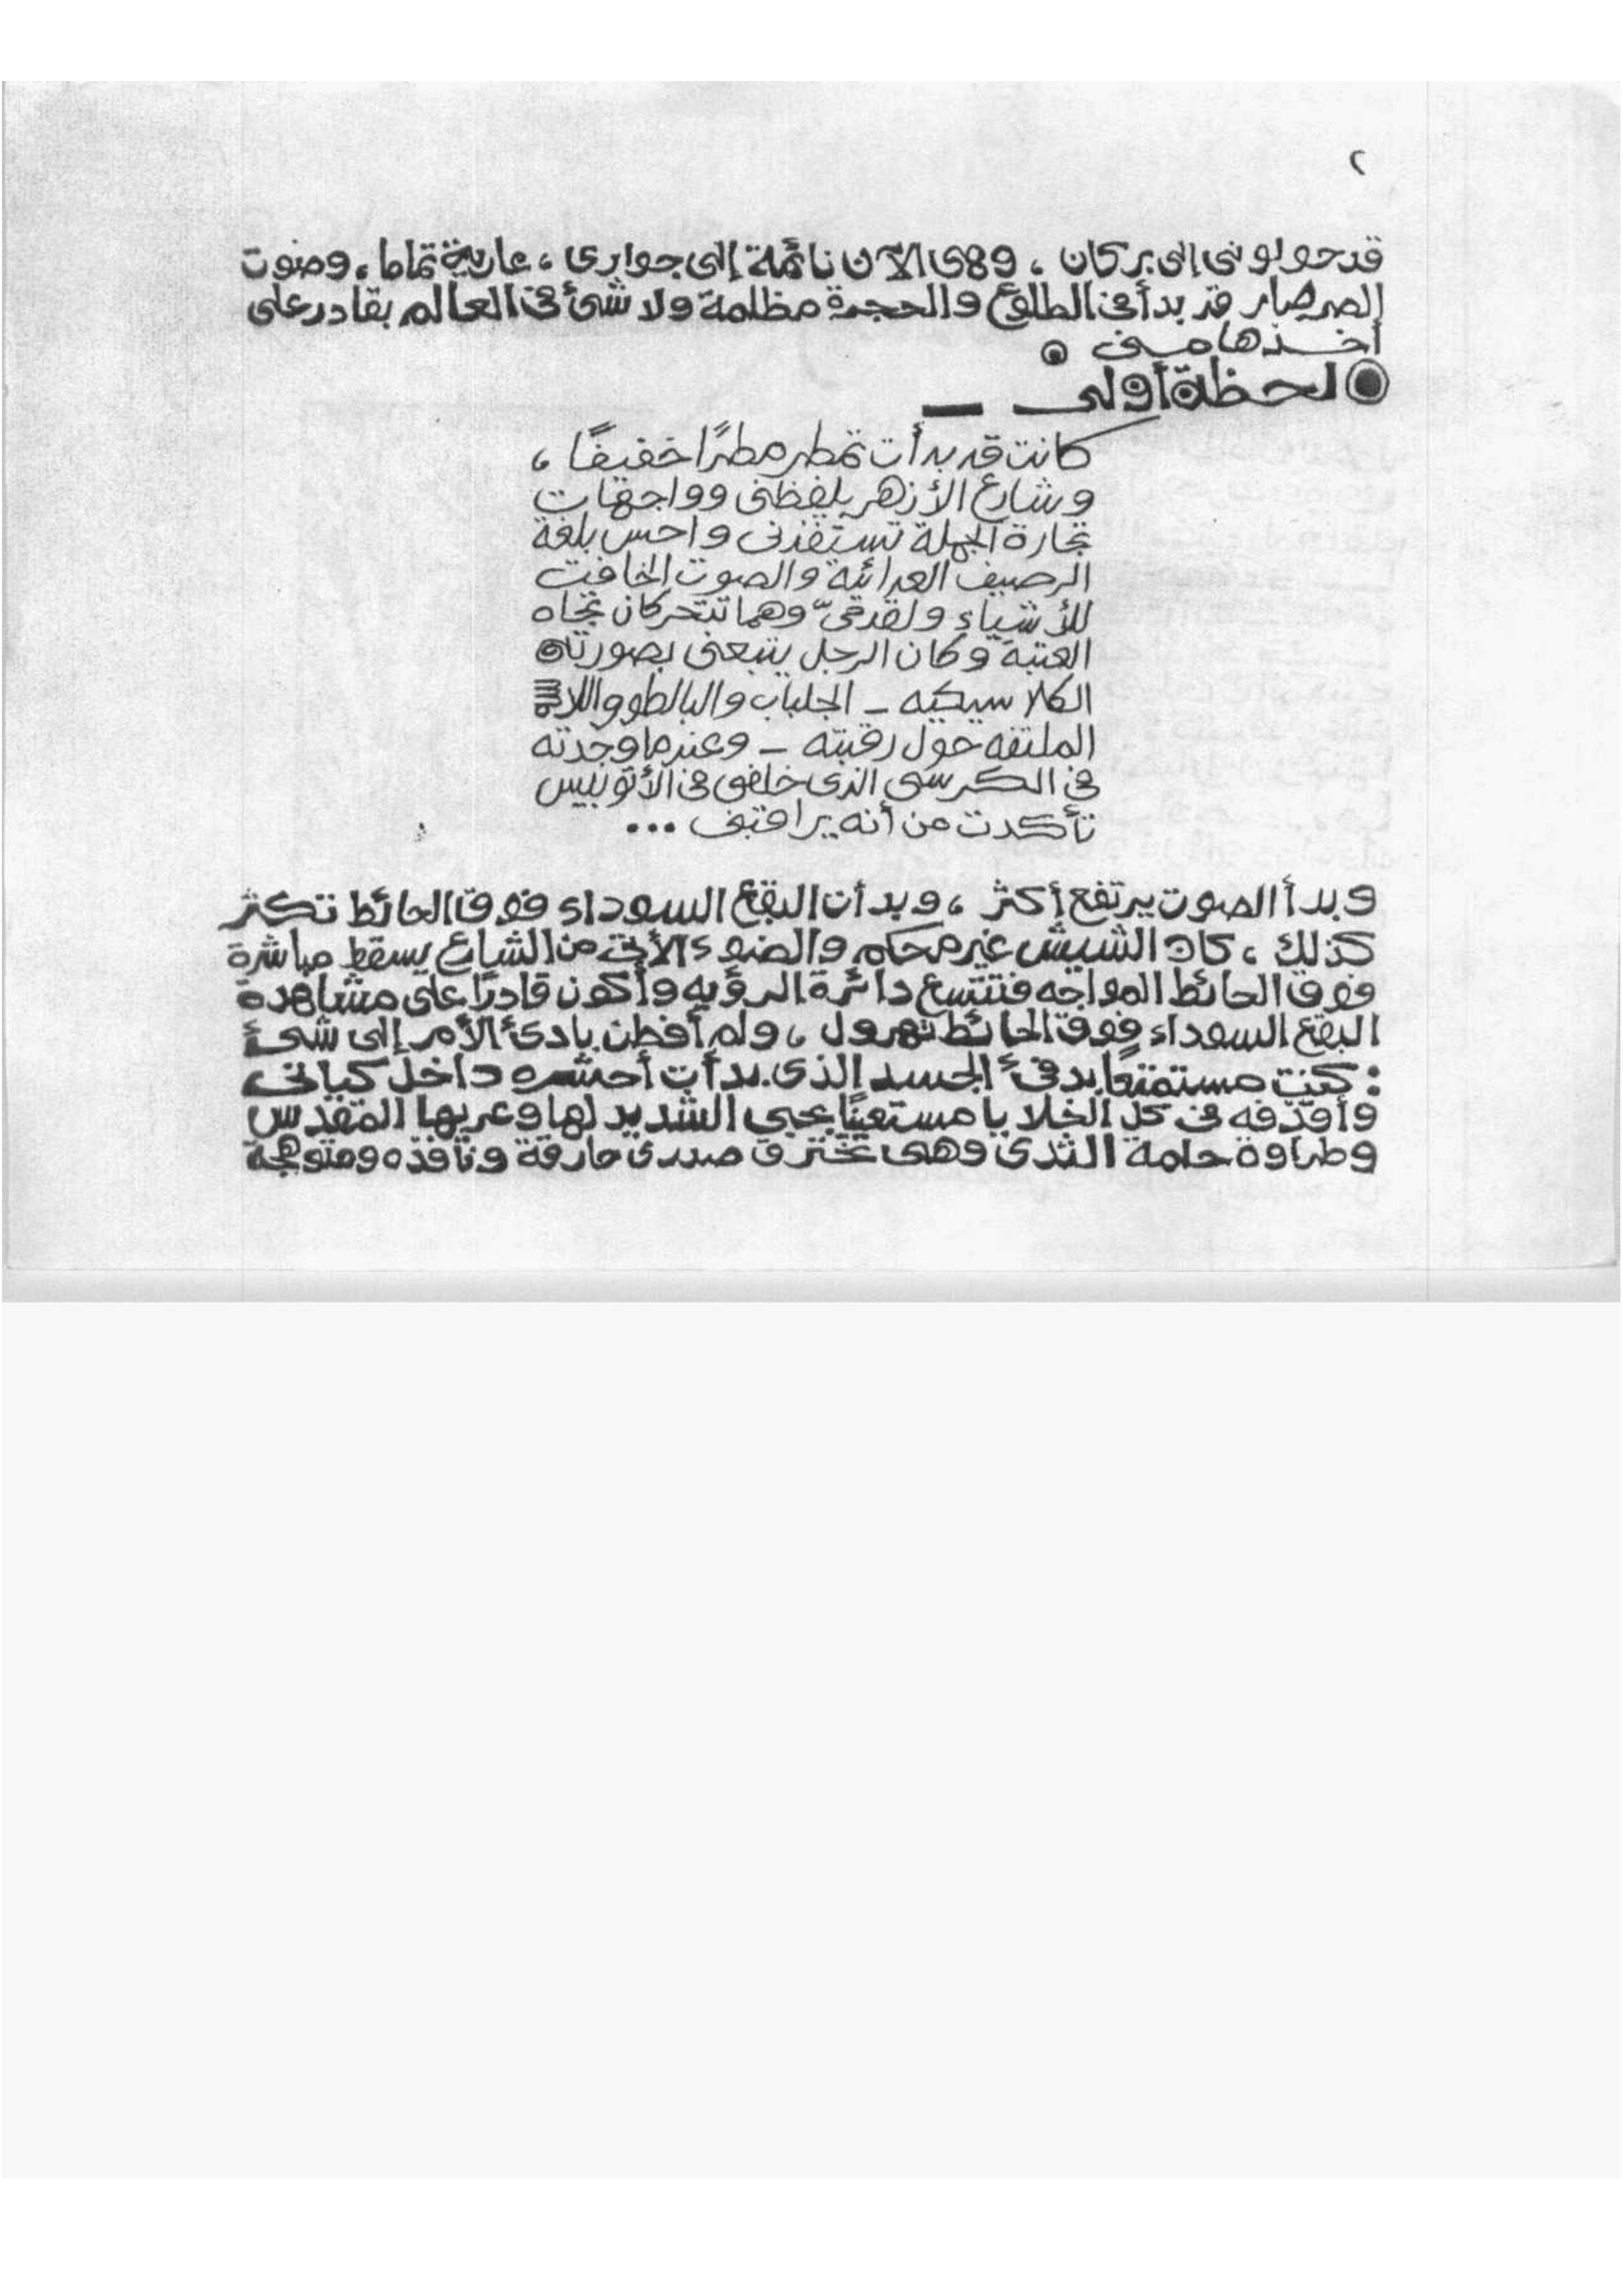 ٢
قد حولوني إلى بركان ، وهى الآن نائمة إلى جوارى ، عارية تماما ، وصوت
الصرصار قد بدأ فى الطلوع والحجرة مظلمة ولا شئ فى العالم بقادر على
أخذها منى ◉
◉ لحظة أولى —
كانت قد بدأت تمطر مطرًا خفيفًا ،
وشارع الأزهر يلفظنى وواجهات
تجارة الجملة تستفزنى واحس بلغة
الرصيف العدائية والصوت الخافت
للأشياء ولقدمىّ وهما تتحركان تجاه
العتبة وكان الرجل يتبعنى بصورته
الكلاسيكيه – الجلباب والبالطو واللاسة
الملتفه حول رقبته – وعندما وجدته
فى الكرسى الذى خلفى فى الأتوبيس
تأكدت من أنه يراقبنى ...
وبدأ الصوت يرتفع أكثر ، وبدأت البقع السوداء فوق الحائط تكثر
كذلك ، كان الشيش غير محكم والضوء الآتى من الشارع يسقط مباشرة
فوق الحائط المواجه فتتسع دائرة الرؤيه وأكون قادرًا على مشاهدة
البقع السوداء فوق الحائط تهرول ، ولم أفطن بادئ الأمر إلى شئ
: كنت مستمتعًا بدفئ الجسد الذى بدأت أحشره داخل كيانى
وأقذفه فى كل الخلايا مستعينًا بحبى الشديد لها وعريها المقدس
وطراوة حلمة الثدى وهى تخترق صدرى حارقة ونافذه ومتوهجة